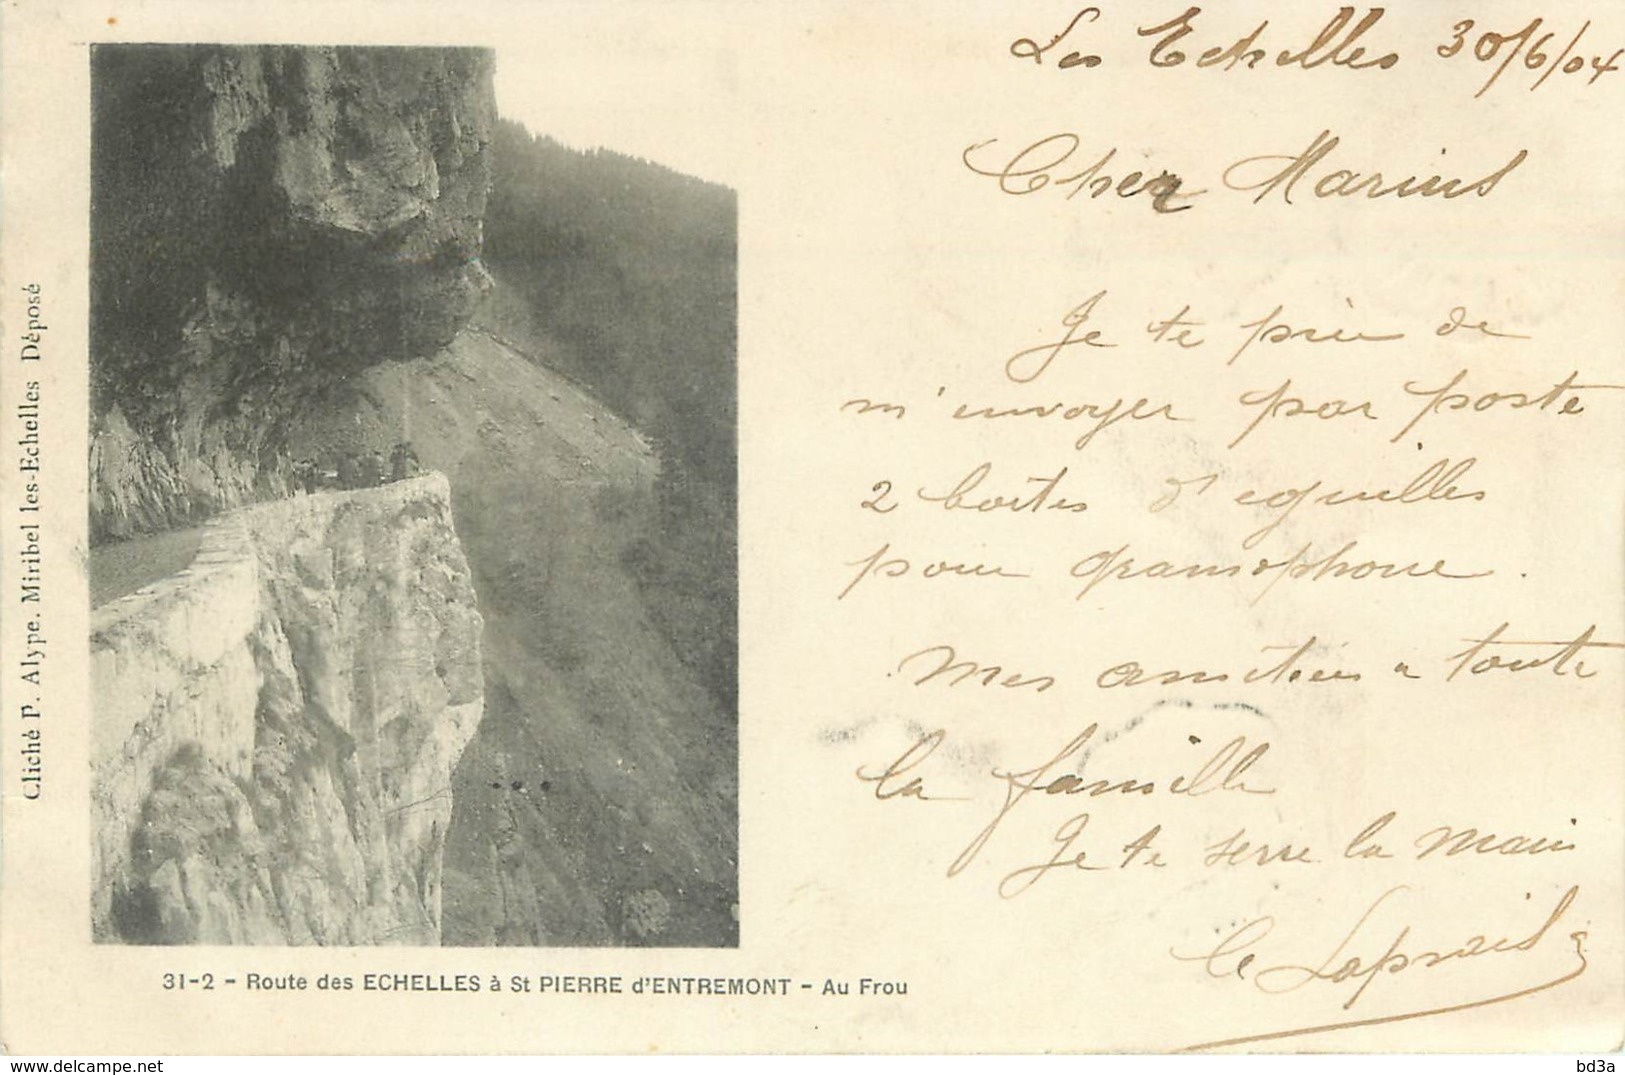 Les Echelles 30/6/04
Cher Marius
Je te prie de
m'envoyer par poste
2 boites d'eguilles
pour gramophone.
Mes amitiés a toute
la famille
Je te serre la main
Cliché P. Alype. Miribel les-Echelles Déposé
31-2 - Route des ECHELLES à St PIERRE d'ENTREMONT - Au Frou
delcampe.net
bd3a